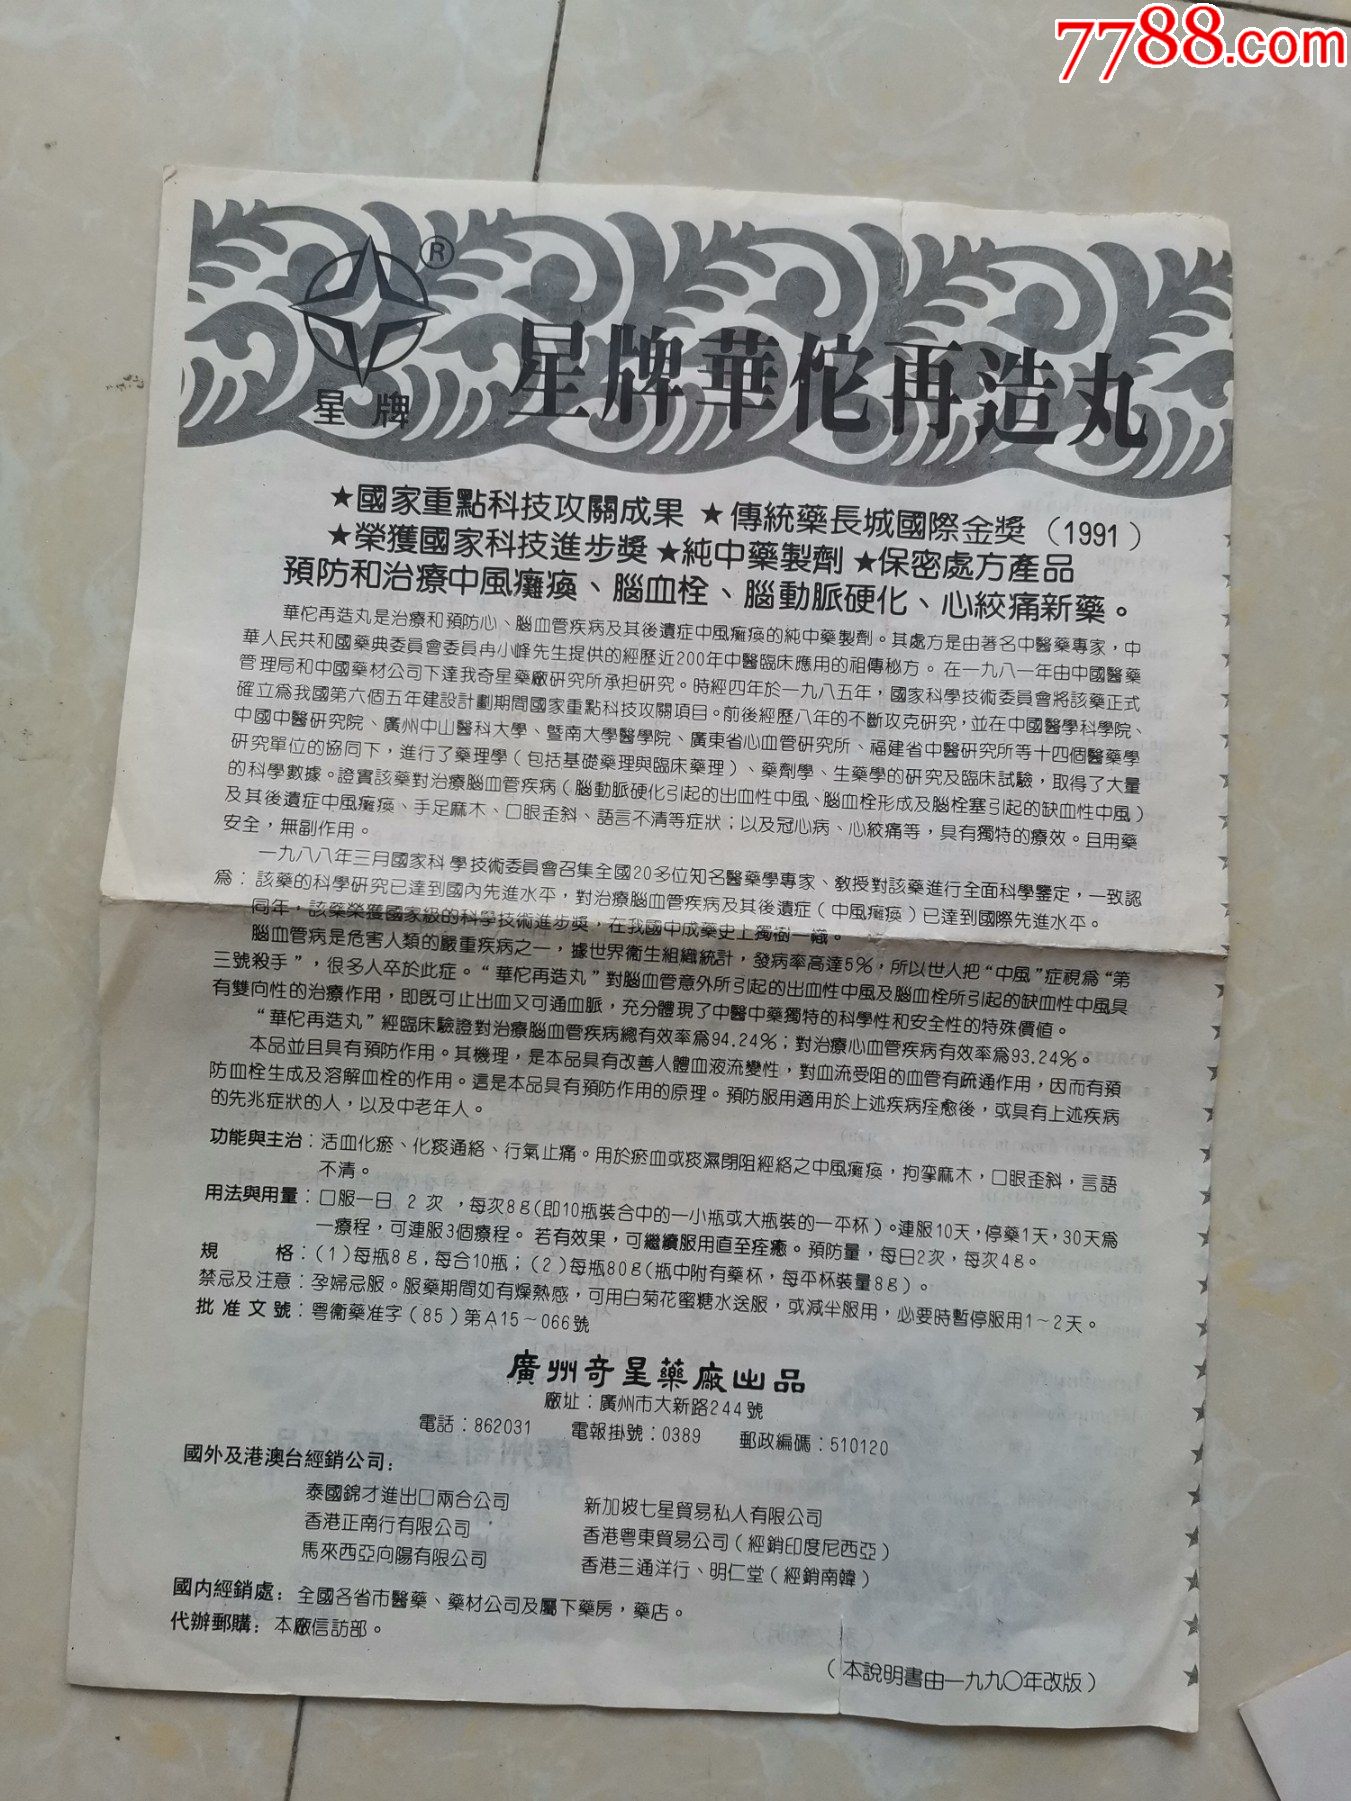 7788.com
®
星牌
星牌華佗再造丸
★國家重點科技攻關成果 ★傳統藥長城國際金獎（1991）
★榮獲國家科技進步獎 ★純中藥製劑 ★保密處方產品
預防和治療中風癱瘓、腦血栓、腦動脈硬化、心絞痛新藥。
華佗再造丸是治療和預防心、腦血管疾病及其後遺症中風癱瘓的純中藥製劑。其處方是由著名中醫藥專家，中
華人民共和國藥典委員會委員冉小峰先生提供的經歷近200年中醫臨床應用的祖傳秘方。在一九八一年由中國醫藥
管理局和中國藥材公司下達我奇星藥廠研究所承担研究。時經四年於一九八五年，國家科學技術委員會將該藥正式
確立爲我國第六個五年建設計劃期間國家重點科技攻關項目。前後經歷八年的不斷攻克研究，並在中國醫學科學院、
中國中醫研究院、廣州中山醫科大學、暨南大學醫學院、廣東省心血管研究所、福建省中醫研究所等十四個醫藥學
研究單位的協同下，進行了藥理學（包括基礎藥理與臨床藥理）、藥劑學、生藥學的研究及臨床試驗，取得了大量
的科學數據。證實該藥對治療腦血管疾病（腦動脈硬化引起的出血性中風、腦血栓形成及腦栓塞引起的缺血性中風）
及其後遺症中風癱瘓、手足麻木、口眼歪斜、語言不清等症狀；以及冠心病、心絞痛等，具有獨特的療效。且用藥
安全，無副作用。
一九八八年三月國家科學技術委員會召集全國20多位知名醫藥學專家、教授對該藥進行全面科學鑒定，一致認
爲：該藥的科學研究已達到國內先進水平，對治療腦血管疾病及其後遺症（中風癱瘓）已達到國際先進水平。
同年，該藥榮獲國家級的科學技術進步獎，在我國中成藥史上獨樹一幟。
腦血管病是危害人類的嚴重疾病之一，據世界衛生組織統計，發病率高達5%，所以世人把“中風”症視爲“第
三號殺手”，很多人卒於此症。“華佗再造丸”對腦血管意外所引起的出血性中風及腦血栓所引起的缺血性中風具
有雙向性的治療作用，即旣可止出血又可通血脈，充分體現了中醫中藥獨特的科學性和安全性的特殊價值。
“華佗再造丸”經臨床驗證對治療腦血管疾病總有效率爲94.24%；對治療心血管疾病有效率爲93.24%。
本品並且具有預防作用。其機理，是本品具有改善人體血液流變性，對血流受阻的血管有疏通作用，因而有預
防血栓生成及溶解血栓的作用。這是本品具有預防作用的原理。預防服用適用於上述疾病痊愈後，或具有上述疾病
的先兆症狀的人，以及中老年人。
功能與主治：活血化瘀、化痰通絡、行氣止痛。用於瘀血或痰濕閉阻經絡之中風癱瘓，拘攣麻木，口眼歪斜，言語
不清。
用法與用量：口服一日 2 次，每次8g(即10瓶裝合中的一小瓶或大瓶裝的一平杯)。連服10天，停藥1天，30天爲
一療程，可連服3個療程。若有效果，可繼續服用直至痊癒。預防量，每日2次，每次4g。
規 格：(1)每瓶8g，每合10瓶；(2)每瓶80g(瓶中附有藥杯，每平杯裝量8g)。
禁忌及注意：孕婦忌服。服藥期間如有燥熱感，可用白菊花蜜糖水送服，或減半服用，必要時暫停服用1～2天。
批准文號：粵衞藥准字(85)第A15～066號
廣州奇星藥廠出品
廠址：廣州市大新路244號
電話：862031 電報掛號：0389 郵政編碼：510120
國外及港澳台經銷公司：
泰國錦才進出口兩合公司 新加坡七星貿易私人有限公司
香港正南行有限公司 香港粵東貿易公司（經銷印度尼西亞）
馬來西亞向陽有限公司 香港三通洋行、明仁堂（經銷南韓）
國内經銷處：全國各省市醫藥、藥材公司及屬下藥房，藥店。
代辦郵購：本廠信訪部。
（本說明書由一九九〇年改版）